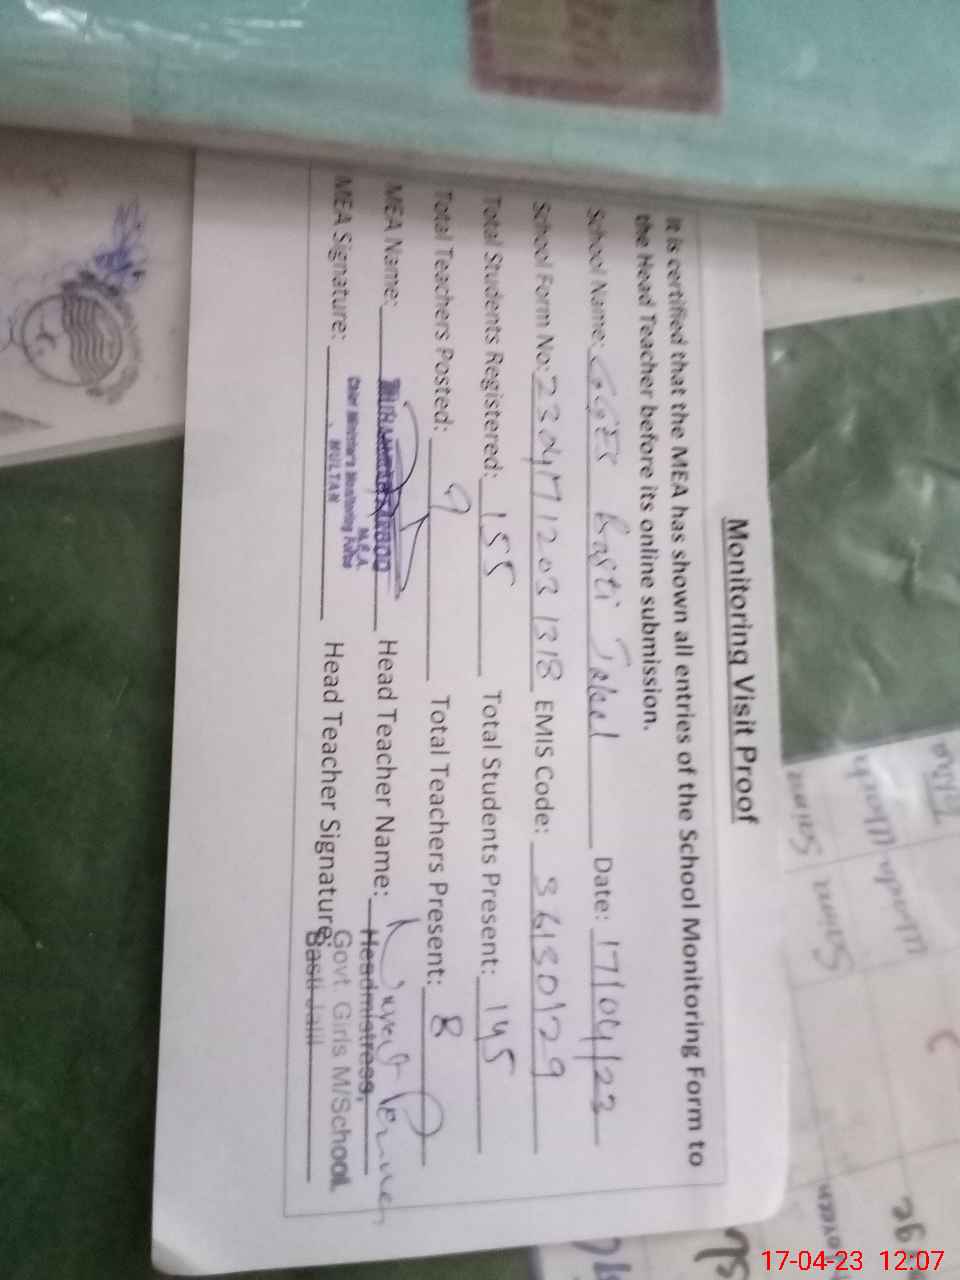 Monitoring Visit Proof
It is certified that the MEA has shown all entries of the School Monitoring Form to
the Head Teacher before its online submission.
School Name: GGES Basti Jaleel Date: 17/04/23
School Form No: 230417 1203 1318 EMIS Code: 36130129
Total Students Registered: 155 Total Students Present: 145
Total Teachers Posted: 9 Total Teachers Present: 8
MEA Name: Head Teacher Name:
M.E.A.
Chief Minister's Monitoring Force
MULTAN
Headmistress,
Govt. Girls M/School,
Basti Jalil
MEA Signature: Head Teacher Signature:
17-04-23 12:07